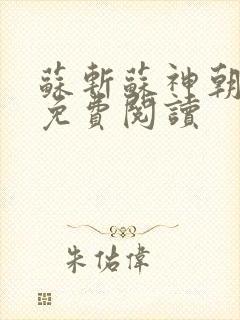 蘇斬蘇神朝
免費閱讀
朱佑偉